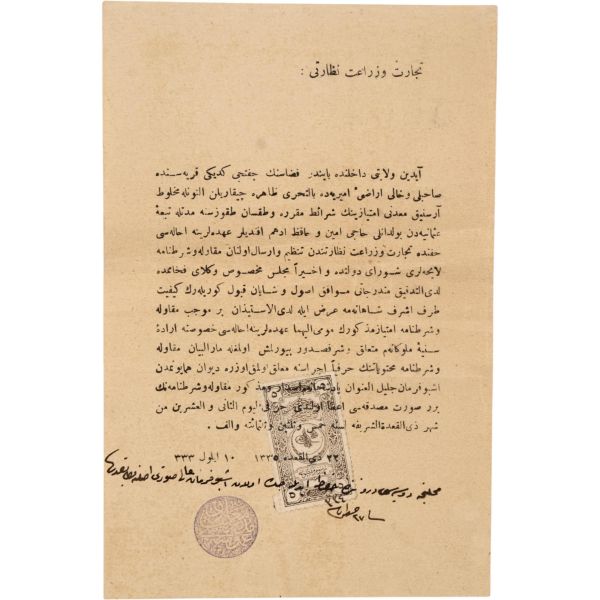 تجارت و زراعت نظارتی :
آیدین ولایتی داخلنده بایندر قضاسنك چفتجی كدیكی قریه سنده
صاحبلی و خالی اراضئ امیریه ده بالتحری ظاهره چیقاریلن التونله مخلوط
آرسنیق معدنی امتیازینك شرائط مقرره و طقسان طقوز سنه مدتله تبعۀ
عثمانیه دن بولدانلی حاجی امین و حافظ ادهم افندیلر عهده لرینه احاله سی
حقنده تجارت و زراعت نظارتندن تنظیم و ارسال اولنان مقاوله و شرطنامه
لایحه لری شورای دولتده و اخیراً مجلس مخصوص وكلای فخامتده
لدی التدقیق مندرجاتی موافق اصول و شایان قبول كوریله رك كیفیت
طرف اشرف شاهانه مه عرض ایله لدی الاستیذان بر موجب مقاوله
و شرطنامه امتیاز مذكورك مومی الیهما عهده لرینه احاله سی خصوصنه ارادۀ
سنیۀ ملوكانه م متعلق و شرفصدور بیورلمش اولمغله مار البیان مقاوله
و شرطنامه محتویاتنك حرفیاً اجراسنه معلق اولمق اوزره دیوان همایونمدن
اشبو فرمان جلیل العنوان و مذكور مقاوله و شرطنامه نك
برر صورت مصدقه سی اعطا اولندی الیوم الثانی و العشرین من
شهر ذی القعدة الشریفه لسنة خمس و ثلثین و ثلثمائة و الف .
٢٢ ذی القعده ١٣٣٥ ١٠ ایلول ٣٣٣
اشبو فرمان عالی صورتی اصلنه